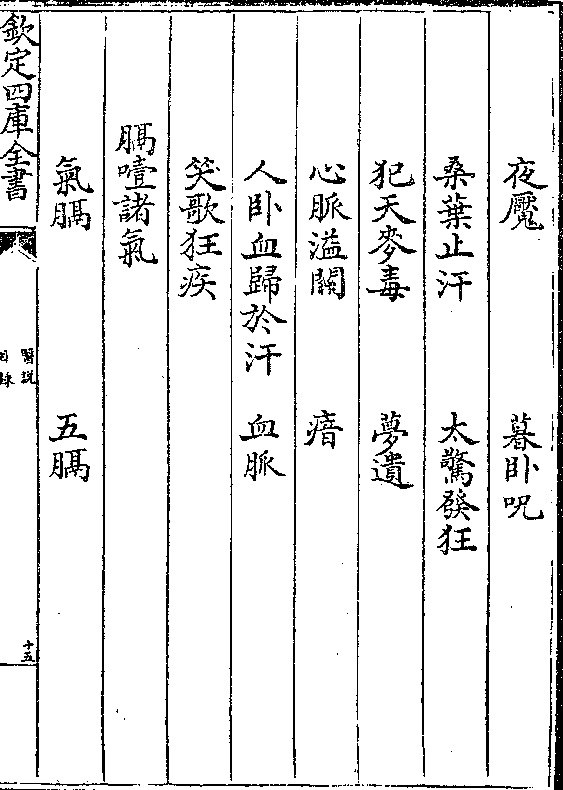 夜魘　暮卧呪
桑葉止汗　太驚發狂
犯天麥毒　夢遺
心脈溢關　瘖
人卧血歸於汗　血脈
笑歌狂疾
膈噎諸氣
氣膈　五膈
欽定四庫全書
醫説
目録
十五